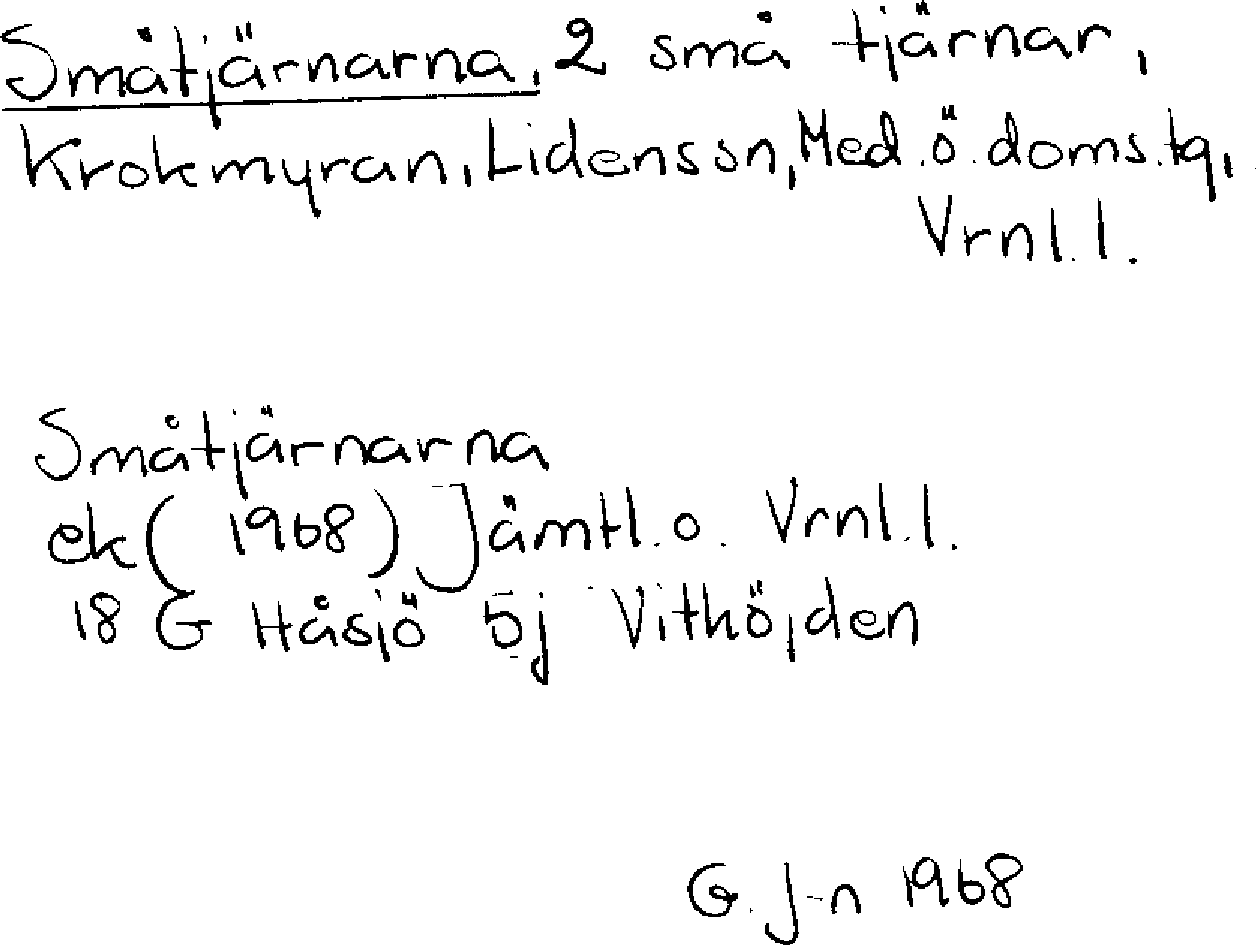 Småtjärnarna, 2 små tjärnar,
Krokmyran, Lidens sn, Med.ö.doms.tg,
Vrnl.l.
Småtjärnarna
ek (1968) Jämtl.o. Vrnl.l.
18 G Håsjö 5j Vithöjden
G. J-n 1968